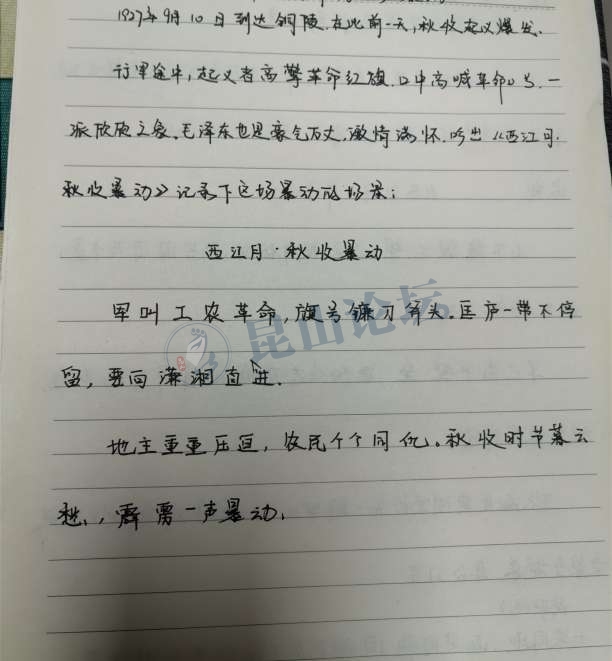 1927年9月10日到达铜陵.在此前一天,秋收起义爆发.
行军途中,起义者高擎革命红旗.口中高喊革命口号.一
派欣欣之象.毛泽东也是豪气万丈,激情满怀.吟出《西江月·
秋收暴动》记录下这场暴动的场景:
西江月·秋收暴动
军叫工农革命,旗号镰刀斧头.匡庐一带不停
留,要向潇湘直进.
地主重重压迫,农民个个同仇.秋收时节暮云
愁,霹雳一声暴动.
昆山论坛